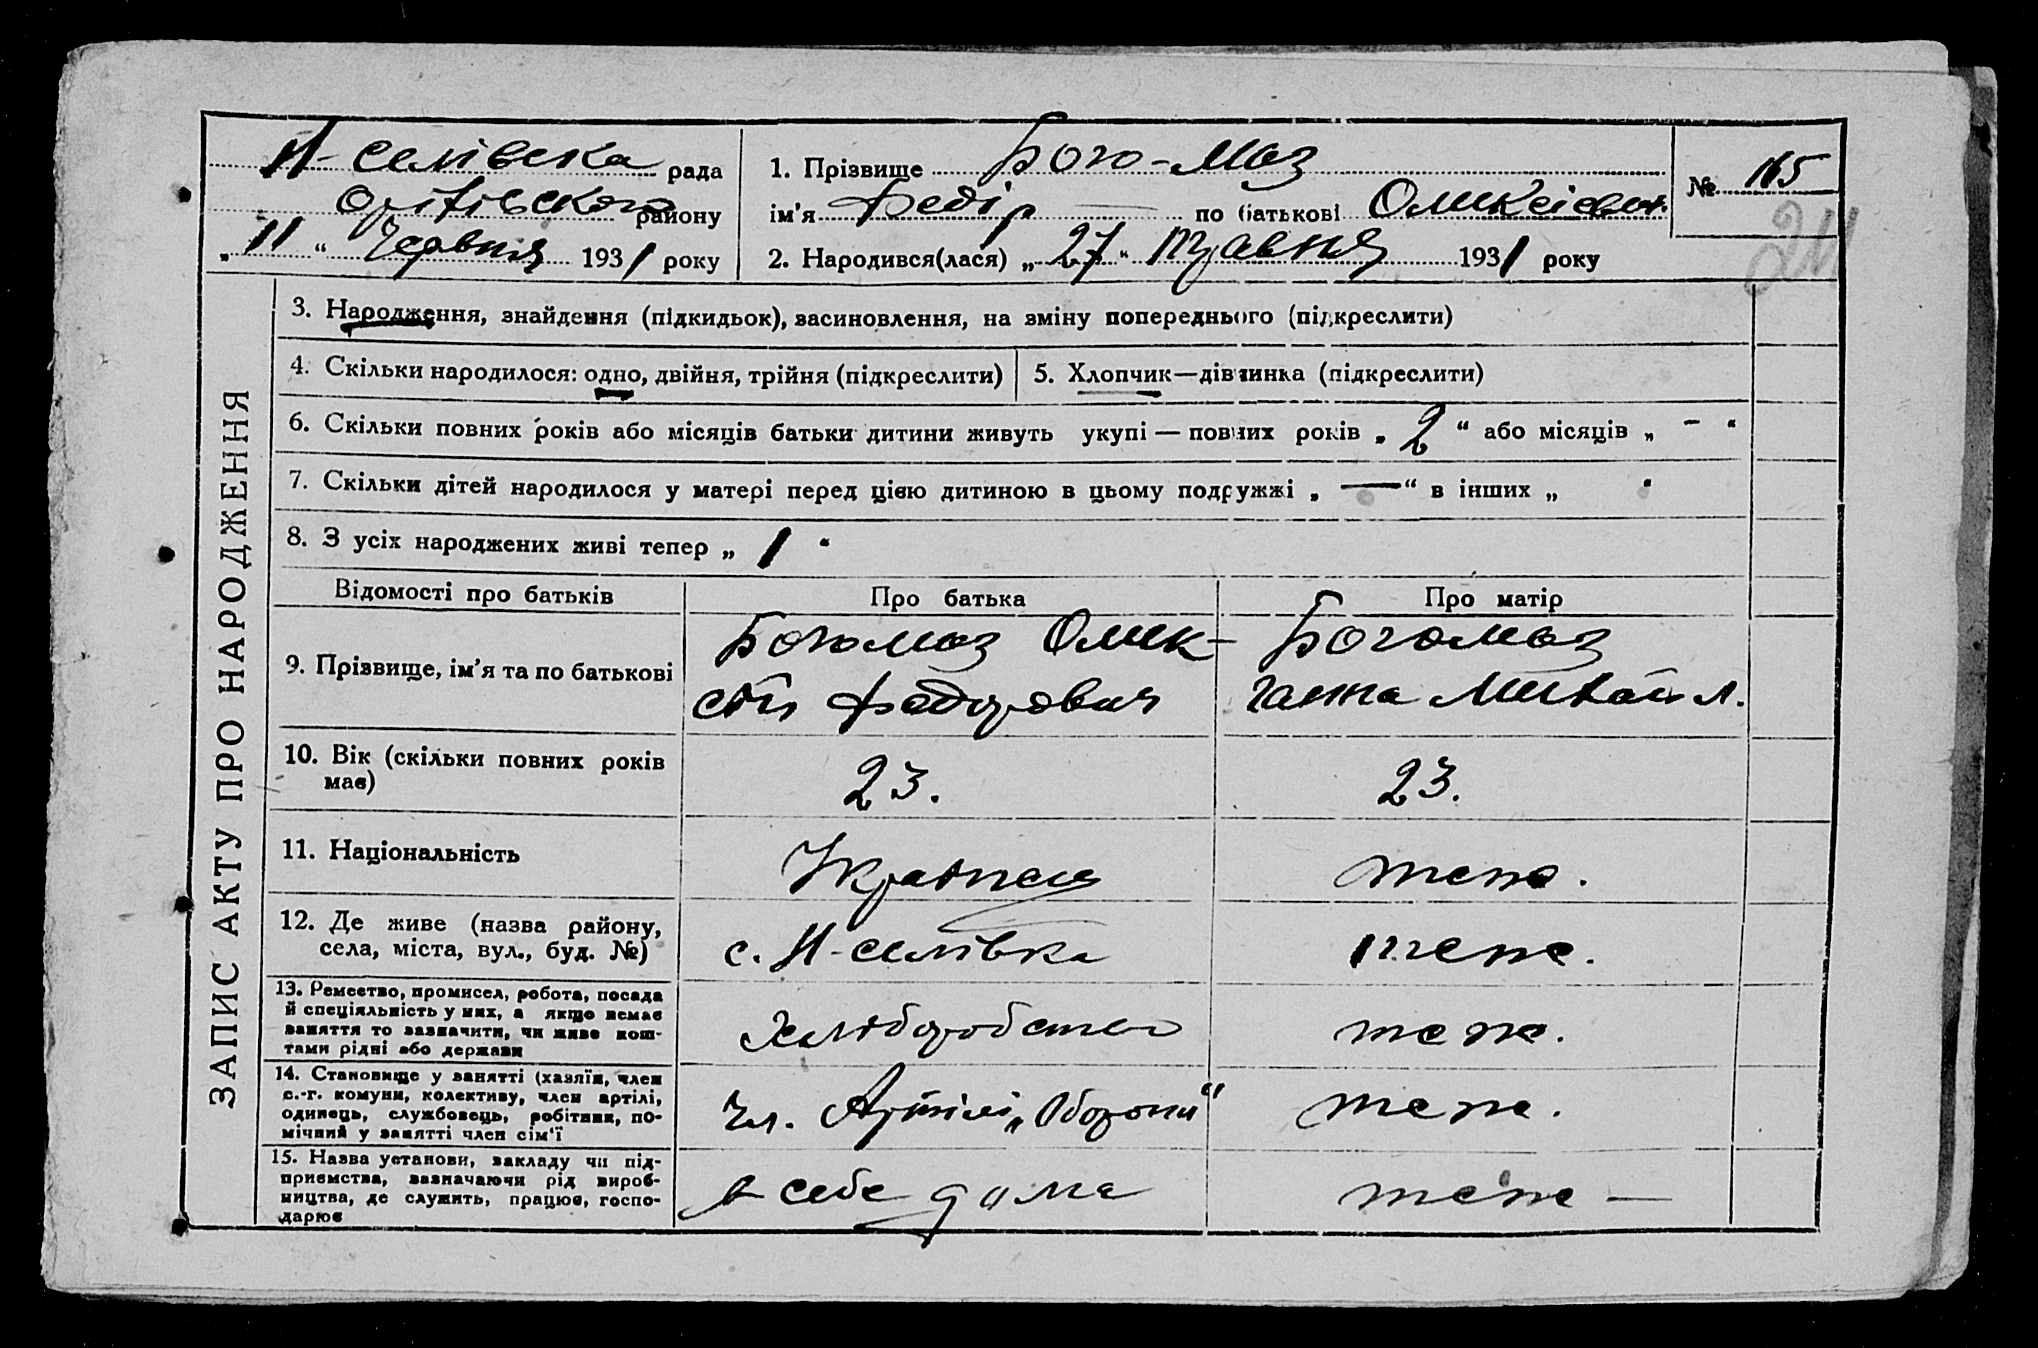 Н-Селівська рада
Оріхівського району
„11“ Червня 1931 року
1. Прізвище Бого-маз
ім'я Федір — по батькові Оликсієвич.
2. Народився(лася) „27“ травня 1931 року
№ 165
24
ЗАПИС АКТУ ПРО НАРОДЖЕННЯ
3. Народження, знайдення (підкидьок), засиновлення, на зміну попереднього (підкреслити)
4. Скільки народилося: одно, двійня, трійня (підкреслити)
5. Хлопчик—дівчинка (підкреслити)
6. Скільки повних років або місяців батьки дитини живуть укупі — повних років „2“ або місяців „-“
7. Скільки дітей народилося у матері перед цією дитиною в цьому подружжі „—“ в інших „ “
8. З усіх народжених живі тепер „1“
Відомості про батьків
Про батька
Про матір
9. Прізвище, ім'я та по батькові
Богомаз Олик-
сій Федорович
Богомаз
Ганна Михайл.
10. Вік (скільки повних років
має)
23.
23.
11. Національність
Українец
теж.
12. Де живе (назва району,
села, міста, вул., буд. №)
с. Н-селівка
теж.
13. Ремество, промисел, робота, посада
й спеціяльність у них, а якщо немає
заняття то зазначити, чи живе кош-
тами рідні або держави
Хліборобство
теж.
14. Становище у занятті (хазяїн, член
с.-г. комуни, колективу, член артілі,
одинець, службовець, робітник, по-
мічний у занятті член сім'ї
Чл. Артілі „Оборони“
теж.
15. Назва установи, закладу чи під-
приємства, зазначаючи рід вироб-
ництва, де служить, працює, госпо-
дарює
в себе дома
теж —